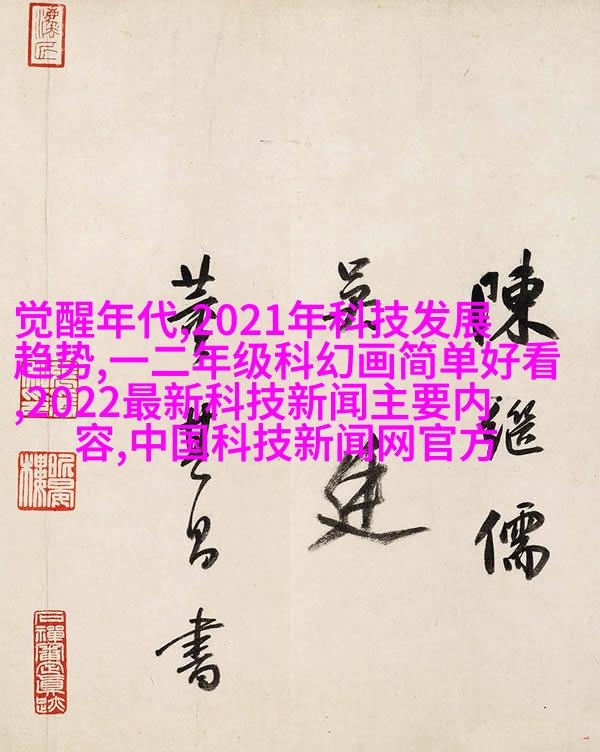 觉醒年代,2021年科技发展
趋势,一二年级科幻画简单好看
,2022最新科技新闻主要内
容,中国科技新闻网官方
陳繼儒
吳廷
董其昌書